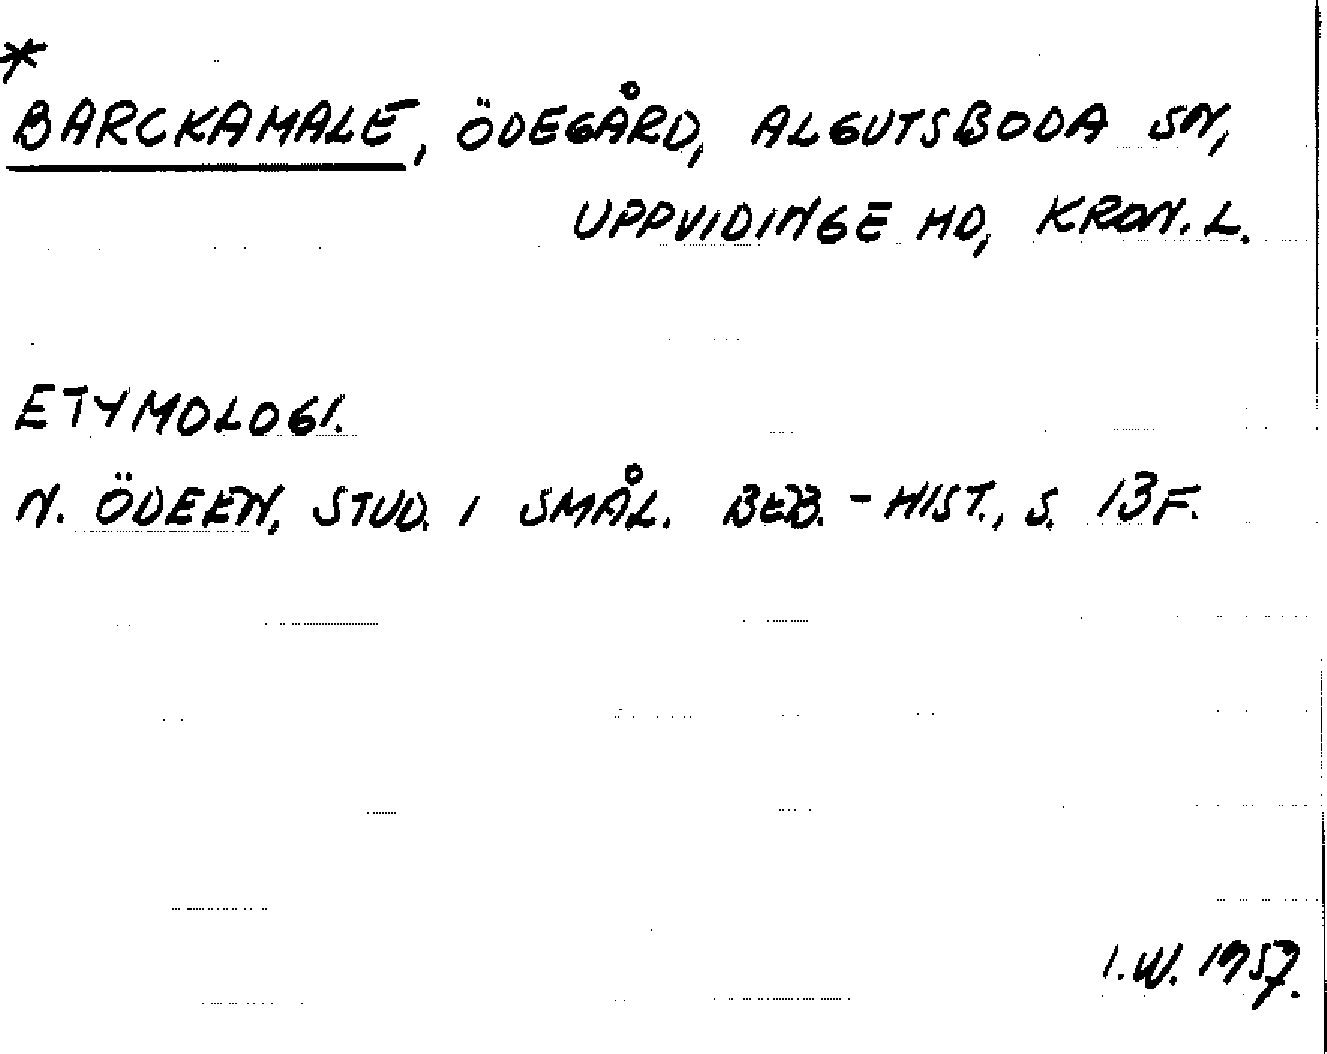 *
BARCKAMALE, ÖDEGÅRD, ALGUTSBODA SN,
UPPVIDINGE HD, KRON.L.
ETYMOLOGI.
N. ÖDEEN, STUD. I SMÅL. BEB.-HIST., S. 13F.
I.W. 1957.